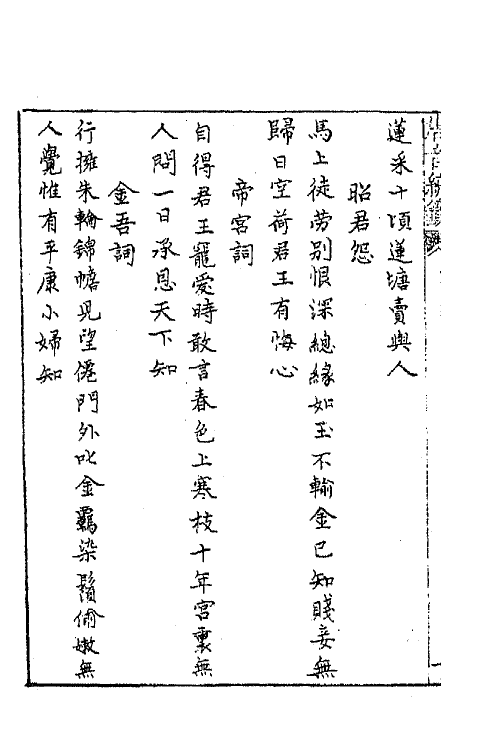 蓮采十頃蓮塘賣與人
昭君怨
馬上徒劳别恨深總緣如玉不輸金已知賤妾無
歸日空荷君王有悔心
帝宫詞
自得君王寵愛時敢言春色上寒枝十年宫裏無
人問一日承恩天下知
金吾詞
行擁朱輪錦幨児望僊門外叱金羈染鬚偷嫩無
人覺惟有平康小婦知